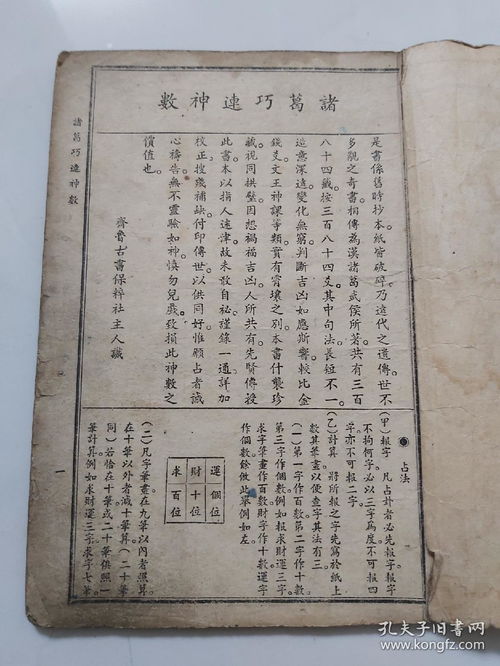 諸葛巧連神數
諸葛巧連神數
是書係舊時抄本紙皆破碎乃遠代之遺傳世不
多覯之奇書相傳為漢諸葛武侯所著共有三百
八十四籤按三百八十四爻其中句法長短不一
造意深遠變化無窮判斷吉凶如應斯響較比金
錢爻文王神課等類實有霄壤之別本書什襲珍
藏視同拱璧因思禍福吉凶人所共有先賢傳授
此書本以指人迷津故未敢自祕謹錄一通詳加
校正搜幾補缺付印傳世以供同好惟願占者誠
心禱告無不靈驗如神慎勿兒戲致損此神數之
價值也
齊魯古書保粹社主人識
占法
(甲)報字 凡占卦者必先報字報字
不拘何字必以三字為度不可報四
字亦不可報二字
(乙)計算 將所報之字先寫於紙上
數其筆畫以便查字其法有三
(一)第一字作百數第二字作十數
第三字作個數例如報求財運三字
求字筆畫作百數財字作十數運字
作個數餘倣此舉例如左
運個位
財十位
求百位
(二)凡字筆畫在九筆以內者照算
在十筆以外者減十筆算(二十筆
同)若恰在十筆或二十筆俱照一
筆計算例如求財運三字求字七筆
一
孔夫子旧书网
www.kongfz.com